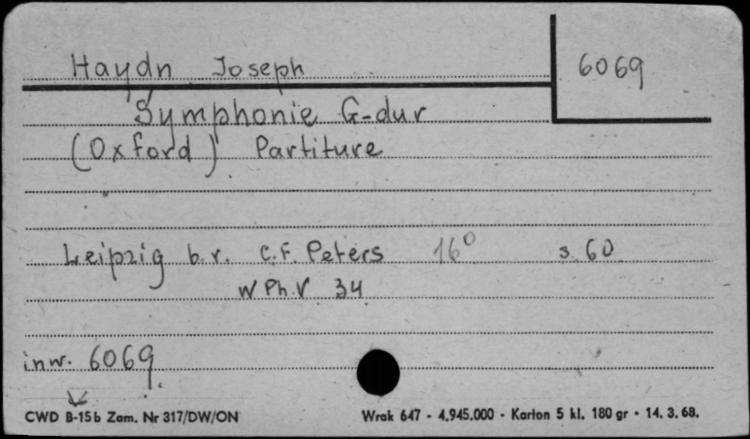 Haydn Joseph 6069
Symphonie G-dur
(Oxford) Partiture
Leipzig b.r. C.F. Peters 16° s. 60
W Ph.V 34
inw. 6069.
CWD B-15b Zam. Nr 317/DW/ON Wrak 647 - 4.945.000 - Karton 5 kl. 180 gr - 14. 3. 68.